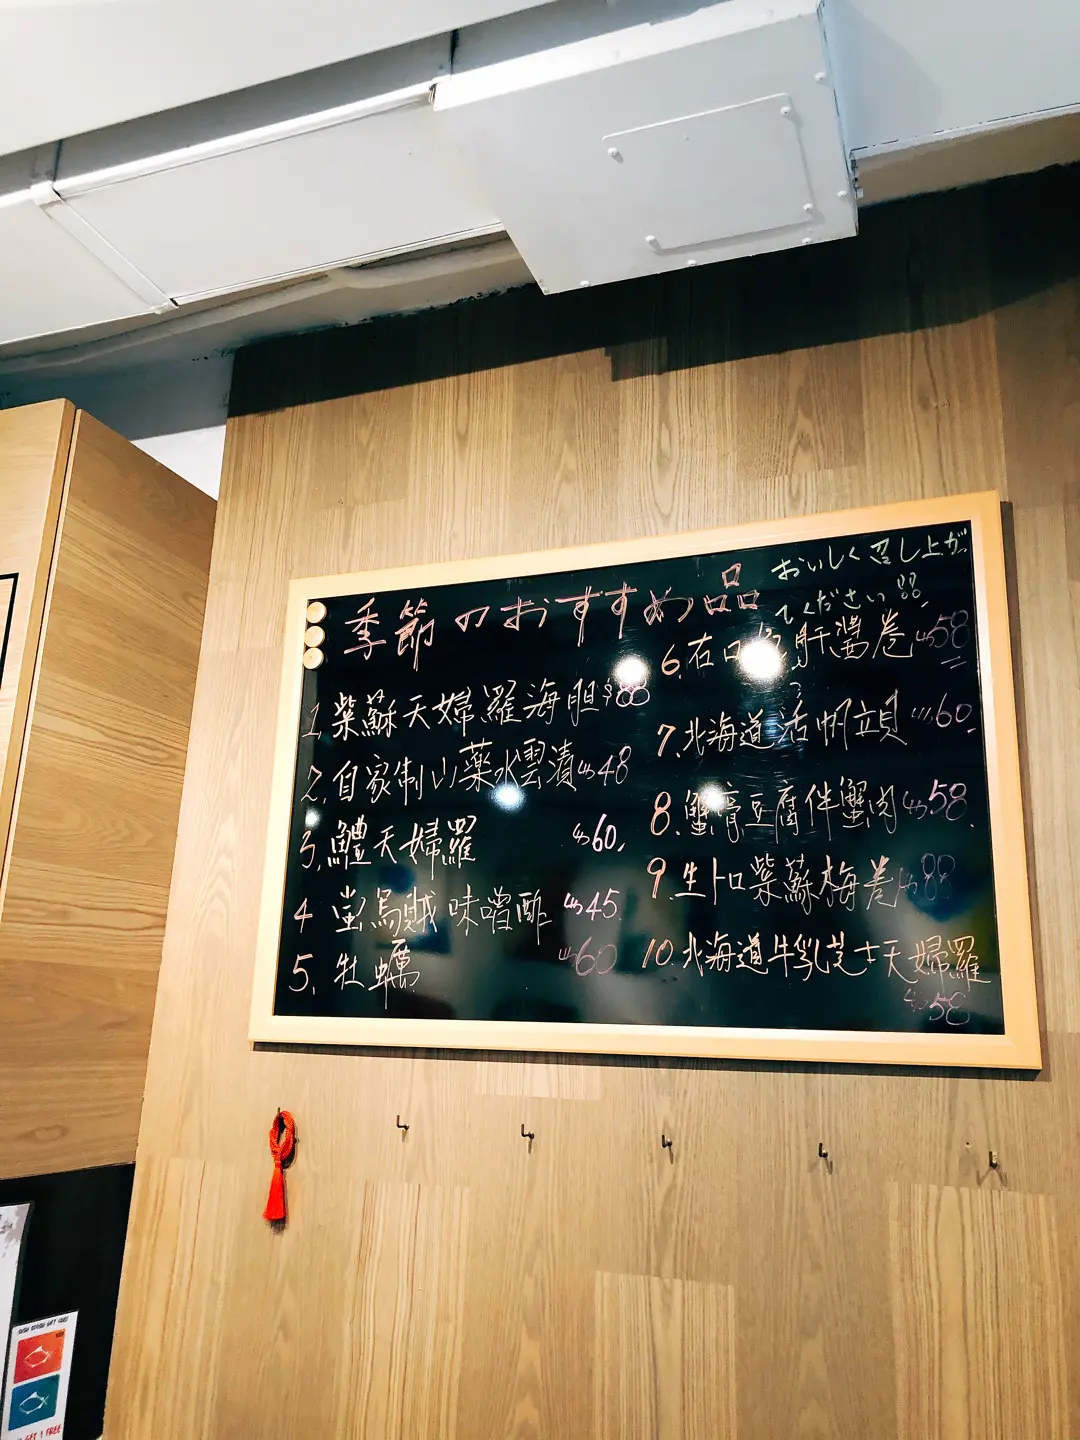 季節のおすすめ品
おいしく召し上が
てください!!
1.紫蘇天婦羅海胆$88
2.自家制山藥水雲漬$48
3.鱧天婦羅 $60
4 蛍烏賊味噌酢 $45
5.牡蠣 $60
6.左口 肝醬卷 $58
7.北海道活帆立貝 $60
8.蟹膏豆腐伴蟹肉 $58
9.生トロ紫蘇梅卷 $88
10.北海道牛乳芝士天婦羅
$58
GET 1 FREE